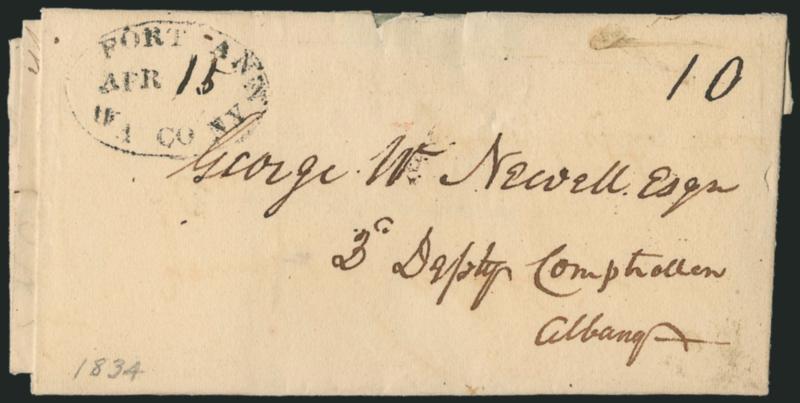 FORT ANN
APR 15
WA CO NY
10
George W Newell Esqr
3d Depty Comptroller
Albany
1834